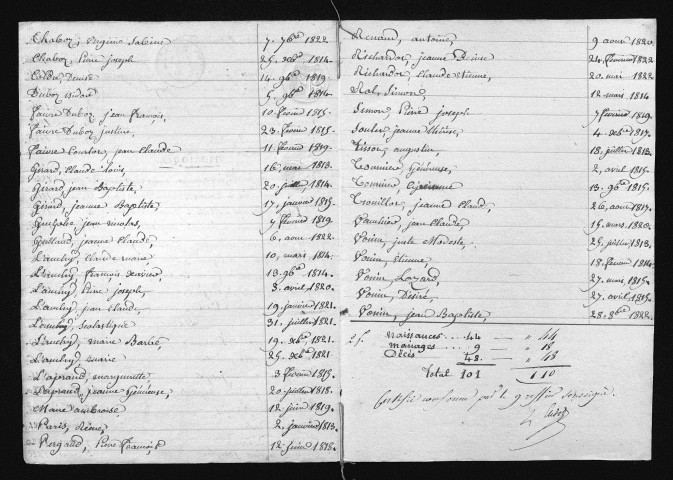 Chaboz, Virginie Sabine 7. 7bre 1822
Chaboz, Pierre joseph 25. xbre 1814.
Colda, Denise 14. 9bre 1819
Duboz, isidore 5. 9bre 1814.
Faivre Duboz, jean François, 10. fevrier 1815.
Faivre Duboz justine, 23. fevrier 1815.
Faivre Courtot, jean claude 11. fevrier 1819.
Girard, Claude Louis, 16. mai 1813.
Girard, jean Baptiste, 20. juillet, 1814.
Girard, jeanne Baptiste, 17. janvier 1815.
jean nicolas, 7 fevrier 1819.
Guillaud, jeanne claude, 6. aout 1822.
Lambry, claude marie 10. mars 1814.
Lambry, François xavier, 13. 9bre 1814.
Lambry, Pierre joseph, 8. avril 1820.
Lambry, jean claude, 19. janvier 1821.
Lambry, Scolastique 31. juillet 1821.
Lambry, marie 19. xbre 1821.
Lambry, marie 25. xbre 1821.
marguerite 3. fevrier 1815.
jeanne Généreuse, 20. juillet 1818.
Marie ambroise. 12. juin 1819.
Paris, 2. janvier 1813.
Pergaud, Pierre François 12. juin 1818.
Renaud, antoine, 9 aout 1820.
Richardot, jeanne Denise 24. fevrier 1822
Richardot, Claude Etienne, 20. mai 1822
Rol, Simon, 12. mars 1814
Simon, Pierre joseph. 7 fevrier 1819.
jeanne 4. xbre 1817.
Tissot, augustin, 18. juillet 1813.
Généreuse, 2. avril 1815.
13. 9bre 1815.
Trouillot, jeanne Claude, 26. aout 1817.
jean Claude, 15. mars 1820.
juste Modeste. 25. juillet 1813.
Etienne 18. fevrier 1814.
Lazard, 27. mars, 1815.
Désiré, 27. avril 1815.
jean Baptiste, 28. 8bre 1822.
Naissances ... 44 — " 44
mariages ... 9 — " 18
Décès 48. — " 48
Total 101 110
Certifié conforme par le greffier soussigné.